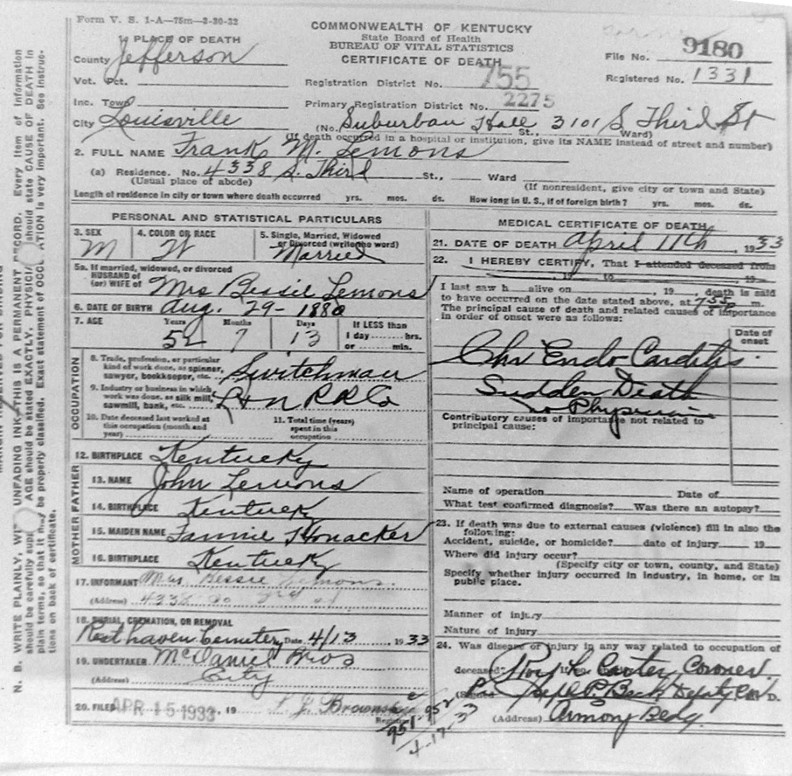 Form V. S. 1-A—75m—3-30-32
COMMONWEALTH OF KENTUCKY
State Board of Health
BUREAU OF VITAL STATISTICS
CERTIFICATE OF DEATH
File No. 9180
Registered No. 1331
1 PLACE OF DEATH
County Jefferson
Vot. Pct.
Registration District No. 755
Inc. Town
Primary Registration District No. 2275
City Louisville
(No. Suburban Hall 3101 S Third St St., Ward)
(If death occurred in a hospital or institution, give its NAME instead of street and number)
2. FULL NAME Frank M. Lemons
(a) Residence. No. 4338 S. Third St., Ward
(Usual place of abode) (If nonresident, give city or town and State)
Length of residence in city or town where death occurred yrs. mos. ds. How long in U. S., if of foreign birth? yrs. mos. ds.
PERSONAL AND STATISTICAL PARTICULARS
3. SEX 4. COLOR OR RACE 5. Single, Married, Widowed
or Divorced (write the word)
M W Married
5a. If married, widowed, or divorced
HUSBAND of
(or) WIFE of Mrs Bessie Lemons
6. DATE OF BIRTH Aug. 29- 1880
7. AGE Years Months Days If LESS than
1 day hrs.
or min.
52 7 13
OCCUPATION
8. Trade, profession, or particular
kind of work done, as spinner,
sawyer, bookkeeper, etc. Switchman
9. Industry or business in which
work was done, as silk mill,
sawmill, bank, etc. L & N R R Co
10. Date deceased last worked at
this occupation (month and
year)
11. Total time (years)
spent in this
occupation
12. BIRTHPLACE Kentucky
MOTHER FATHER
13. NAME John Lemons
14. BIRTHPLACE Kentucky
15. MAIDEN NAME Fannie Honacker
16. BIRTHPLACE Kentucky
17. INFORMANT Mrs. Bessie Lemons
(Address) 4338 So 3rd St
18. BURIAL, CREMATION, OR REMOVAL
Rest haven Cemetery Date 4/13 1933
19. UNDERTAKER McDaniel Bros
(Address) City
20. FILED APR 15 1933, 19
Registrar
951-952
4-17-33
MEDICAL CERTIFICATE OF DEATH
21. DATE OF DEATH April 11th, 1933
22. I HEREBY CERTIFY, That I attended deceased from
, 19 to , 19
I last saw h alive on , 19 , death is said
to have occurred on the date stated above, at 7:55 m.
The principal cause of death and related causes of importance
in order of onset were as follows:
Date of
onset
Chr Endo Carditis
Sudden Death
no Physician
Contributory causes of importance not related to
principal cause:
Name of operation Date of
What test confirmed diagnosis? Was there an autopsy?
23. If death was due to external causes (violence) fill in also the
following:
Accident, suicide, or homicide? date of injury 19
Where did injury occur?
(Specify city or town, county, and State)
Specify whether injury occurred in industry, in home, or in
public place.
Manner of injury
Nature of injury
24. Was disease or injury in any way related to occupation of
deceased? Roy L Carter, Coroner.
Deputy Cor D.
(Address) Armory Bldg.
N. B. WRITE PLAINLY, UNFADING INK—THIS IS A PERMANENT RECORD. Every item of information
should be carefully AGE should be stated EXACTLY. should state CAUSE OF DEATH in
plain terms, so that it may be properly classified. Exact statement of is very important. See instruc-
tions on back of certificate.